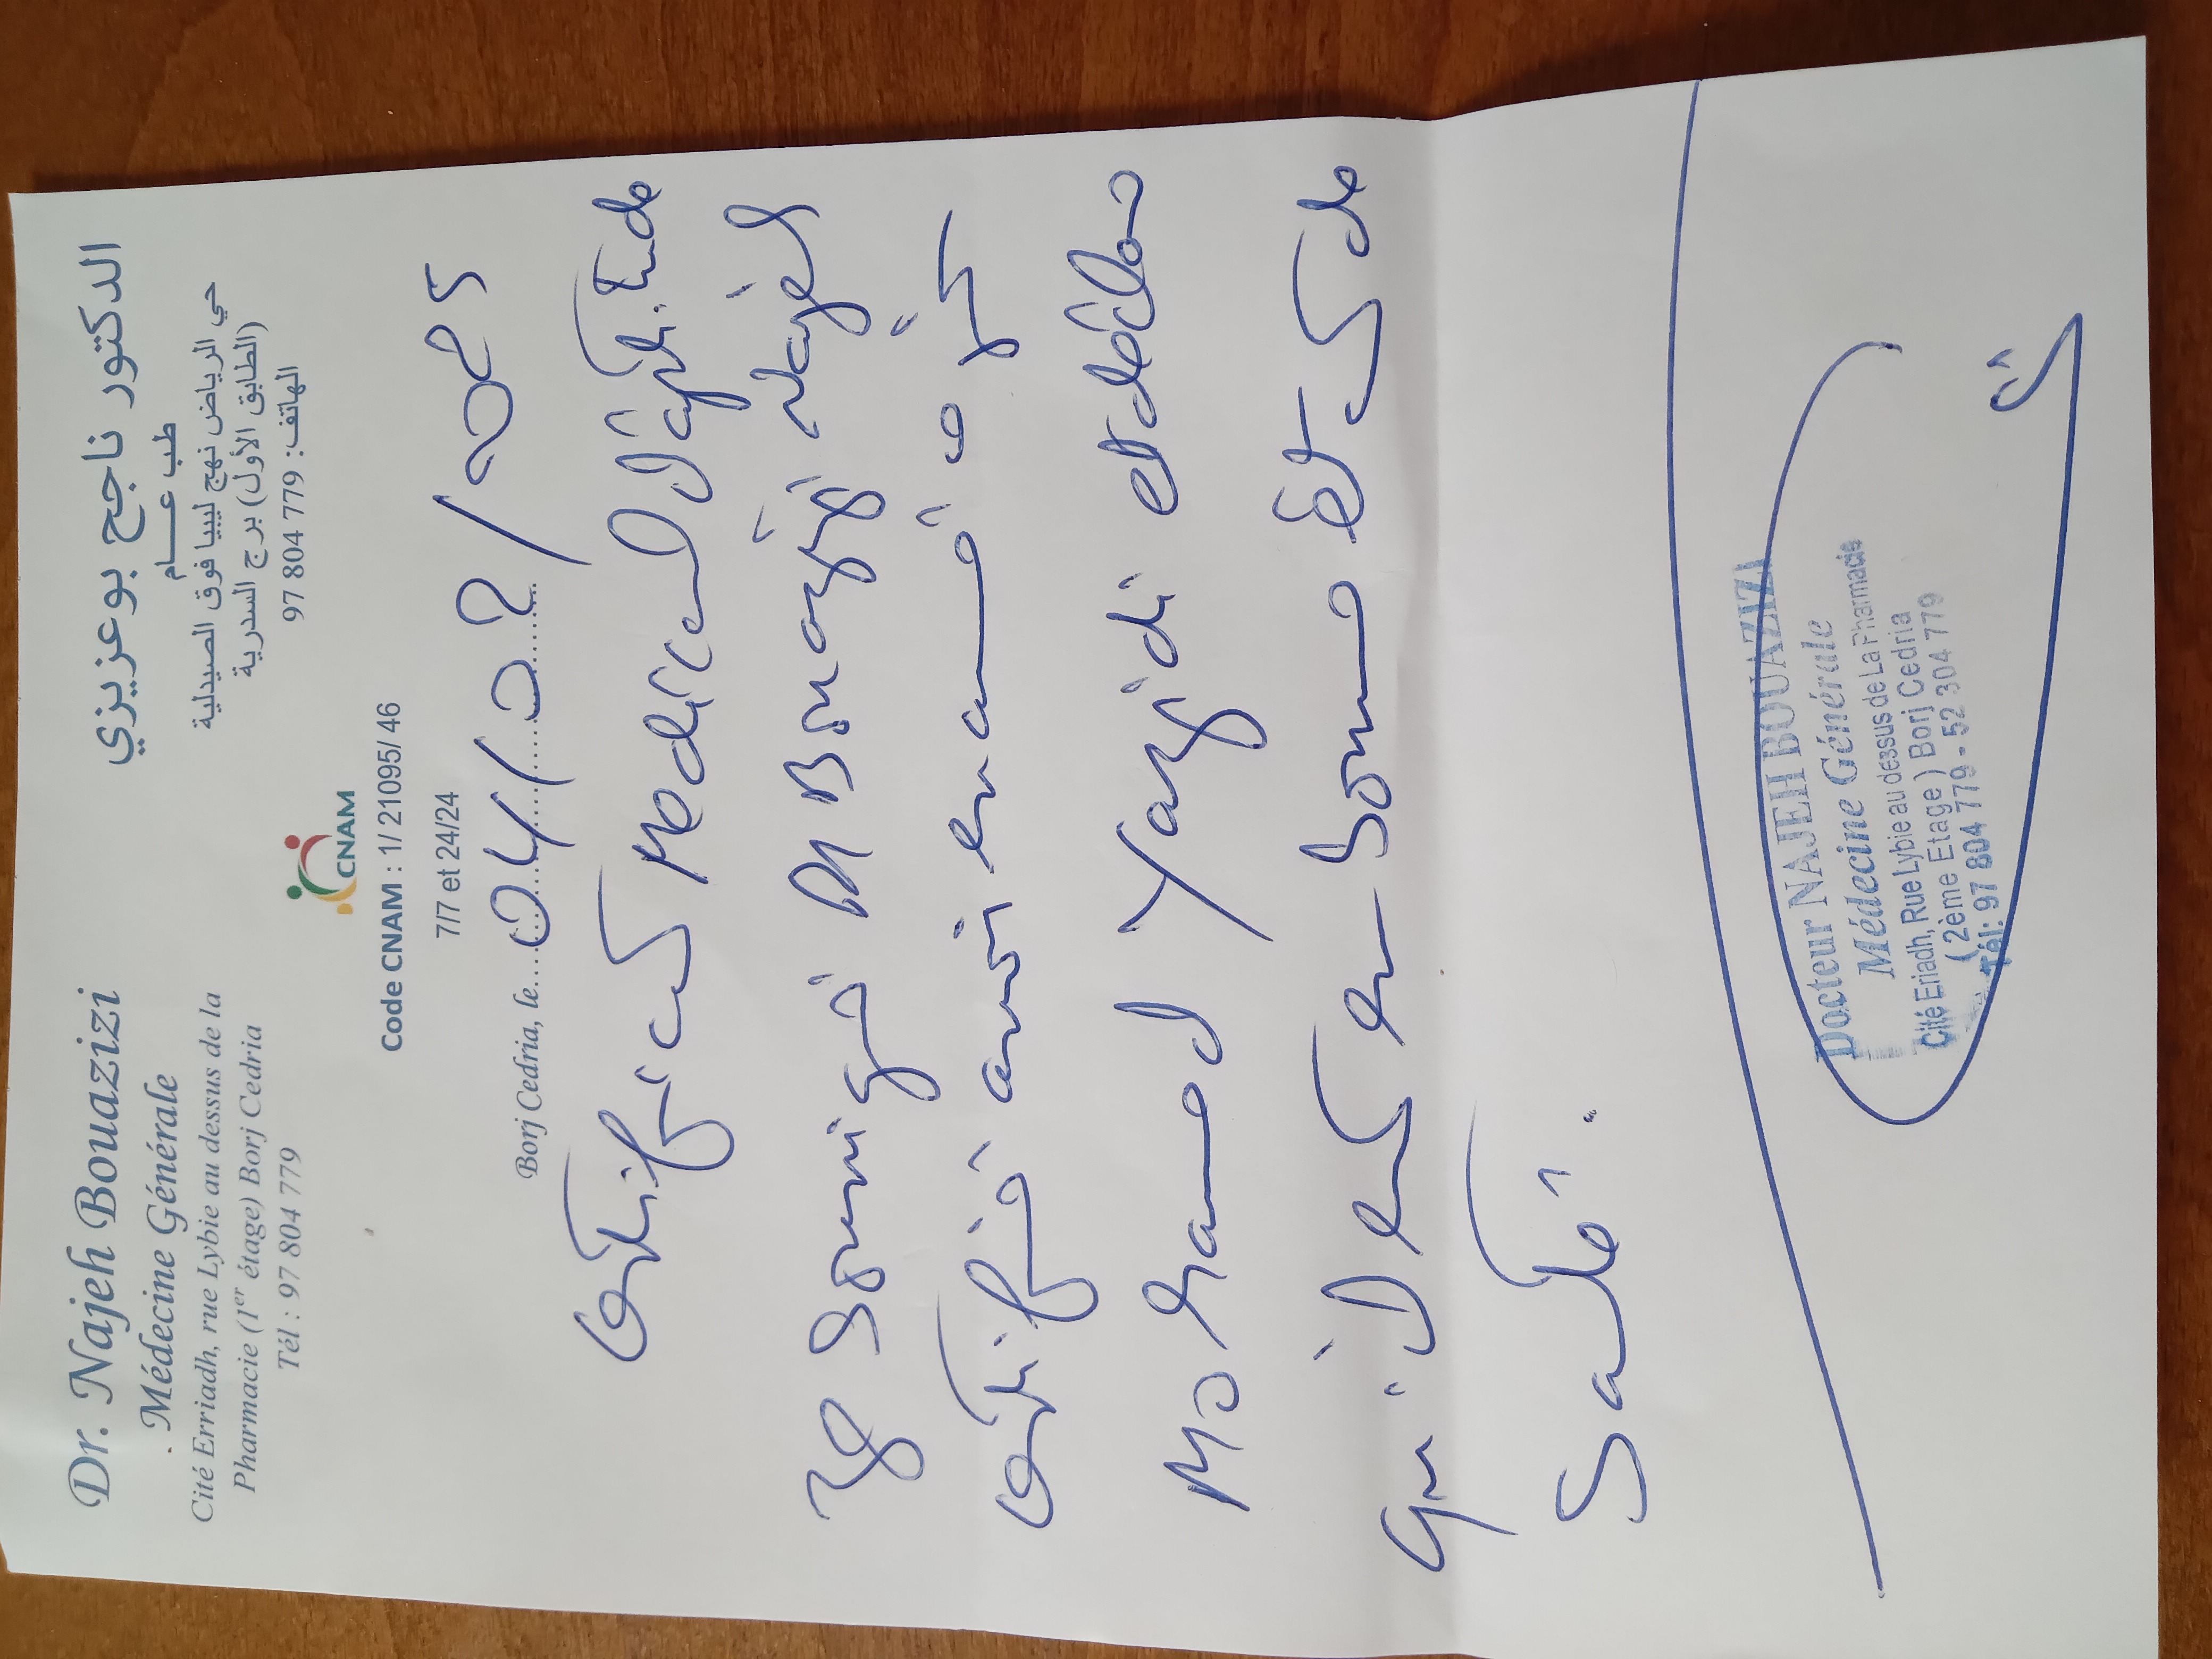 Dr. Najeh Bouazizi
Médecine Générale
Cité Erriadh, rue Lybie au dessus de la
Pharmacie (1er étage) Borj Cedria
Tél : 97 804 779
الدكتور ناجح بوعزيزي
طب عـــــام
حي الرياض نهج ليبيا فوق الصيدلية
(الطابق الأول) برج السدرية
الهاتف: 779 804 97
CNAM
Code CNAM : 1/ 21095/ 46
7/7 et 24/24
Borj Cedria, le 04/07/2025
Certificat Médical d'aptitude
Je soussigné Dr Bouazizi Najeh
Certifie avoir examiné ce
Mohamed Yazidi et déclare
qu'il est en bonne état de
Santé.
Docteur NAJEH BOUAZIZI
Médecine Générale
Cité Eriadh, Rue Lybie au dessus de La Pharmacie
( 2ème Etage ) Borj Cedria
Tél: 97 804 779 - 52 304 779